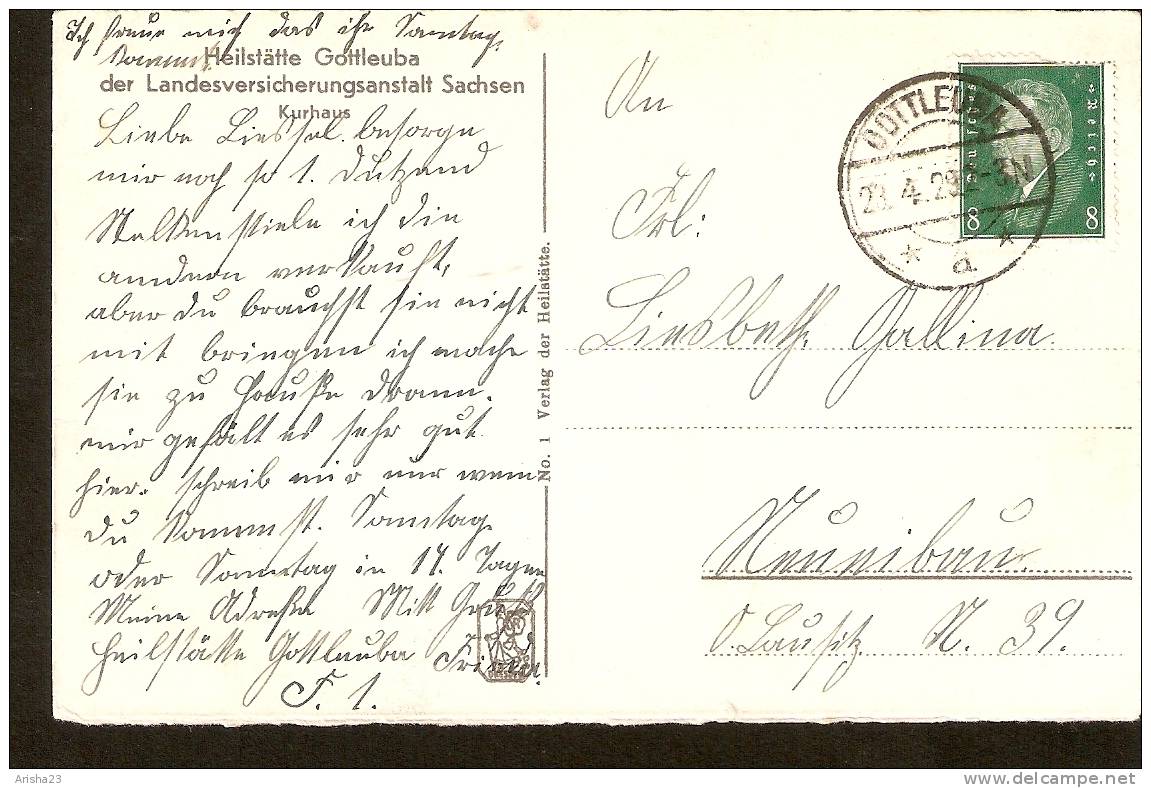 Ich freue mich das ihr Sonntag
kommt.
Heilstätte Gottleuba
der Landesversicherungsanstalt Sachsen
Kurhaus
Liebe Liessel. besorge
mir noch so 1. Dutzend
ich die
andern verkauft,
aber du brauchst sie nicht
mit bringen ich mache
sie zu Hauße drann.
mir gefält es sehr gut
hier. schreib mir nur wenn
du kommst. Sonntag
oder Sonntag in 14. Tagen
Meine Adreße Mitt Gruß
Heilstätte Gottleuba
F. 1.
No. 1 Verlag der Heilstätte.
An
Frl:
Liesbeth Gallina.
O. Lausitz N. 39.
GOTTLEUBA
4.29.2-3N
* a *
Deutsches Reich
8 8
Arisha23
delcampe.net